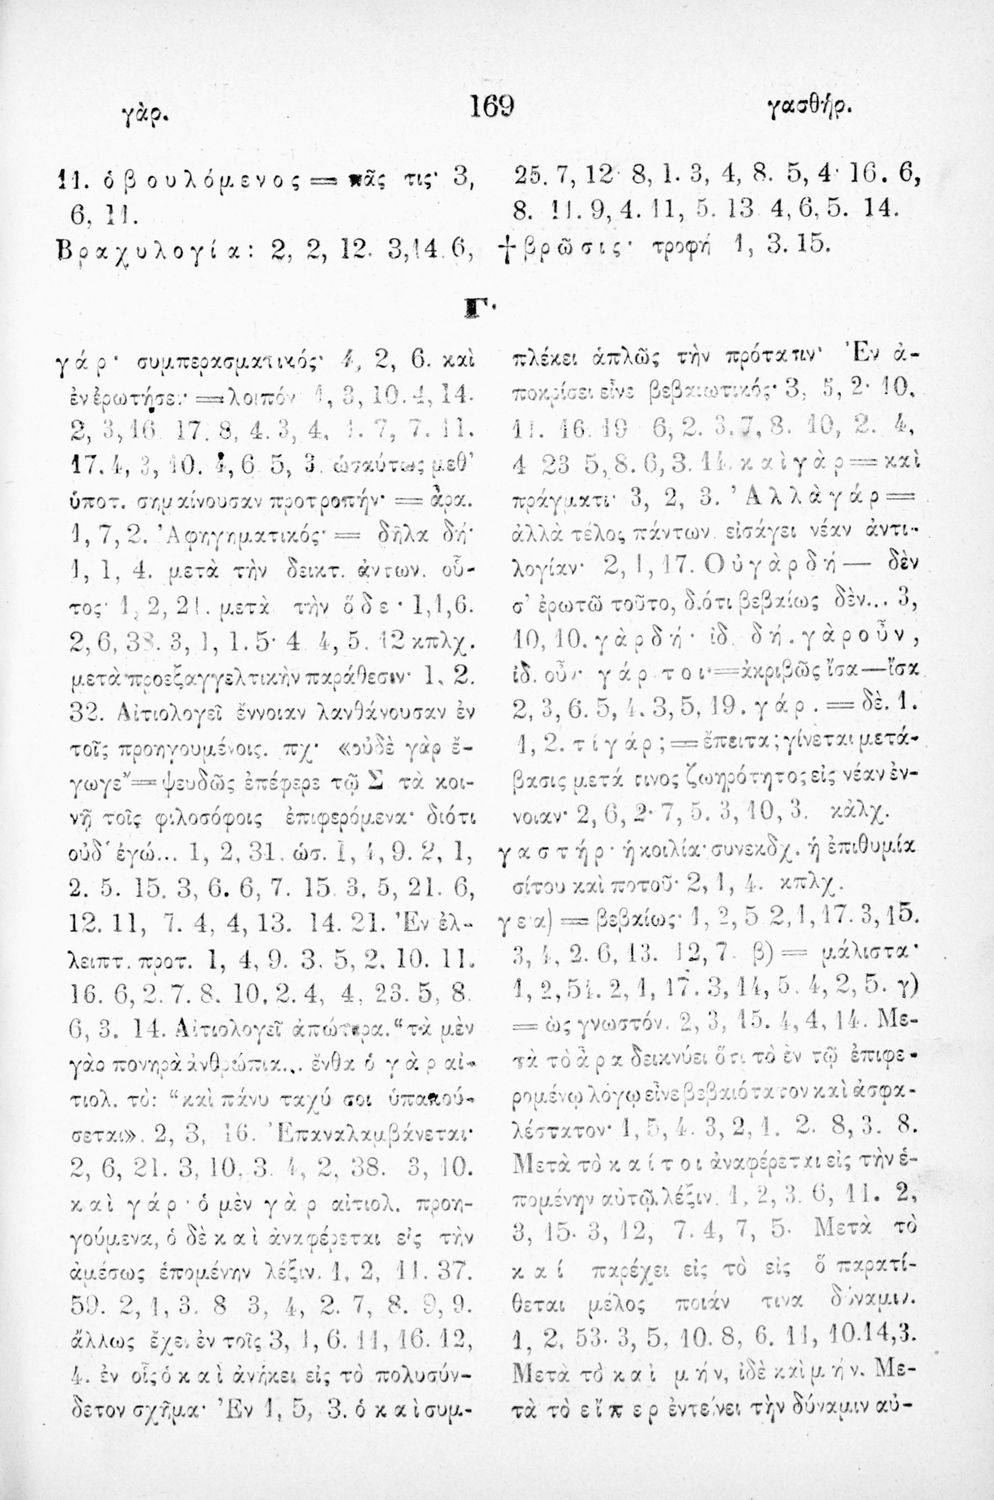 γὰρ.
169
γασθήρ.
11. ὁ βουλόμενος = πᾶς τις· 3,
6, 11.
Βραχυλογία: 2, 2, 12. 3,14. 6,
25. 7, 12· 8, 1. 3, 4, 8. 5, 4· 16. 6,
8. 11. 9, 4. 11, 5. 13 4, 6, 5. 14.
†βρῶσις· τροφή 1, 3. 15.
Γ·
γάρ· συμπερασματικός· 4, 2, 6. καὶ
ἐν ἐρωτήσει· = λοιπόν 1, 3, 10. 4, 14.
2, 3, 16 17. 8, 4. 3, 4, 1. 7, 7. 11.
17. 4, 3, 10. 4, 6 5, 3. ὡσαύτως μεθ’
ὑποτ. σημαίνουσαν προτροπήν· = ἆρα.
1, 7, 2. Ἀφηγηματικός· = δῆλα δή·
1, 1, 4. μετὰ τὴν δεικτ. ἀντων. οὗ-
τος· 1, 2, 21. μετὰ τὴν ὅδε· 1,1,6.
2, 6, 38. 3, 1, 1. 5· 4 4, 5. 12 κπλχ.
μετὰ προεξαγγελτικὴν παράθεσιν· 1. 2.
32. Αἰτιολογεῖ ἔννοιαν λανθάνουσαν ἐν
τοῖς προηγουμένοις. πχ· «οὐδὲ γὰρ ἔ-
γωγε" = ψευδῶς ἐπέφερε τῷ Σ τὰ κοι-
νῇ τοῖς φιλοσόφοις ἐπιφερόμενα· διότι
οὐδ᾿ ἐγώ... 1, 2, 31. ὡσ. 1, 4, 9. 2, 1,
2. 5. 15. 3, 6. 6, 7. 15. 3. 5, 21. 6,
12. 11, 7. 4, 4, 13. 14. 21. Ἐν ἐλ-
λειπτ. προτ. 1, 4, 9. 3. 5, 2. 10. 11.
16. 6, 2. 7. 8. 10, 2. 4, 4, 23. 5, 8.
6, 3. 14. Αἰτιολογεῖ ἀπώτερα. “τὰ μὲν
γὰρ πονηρὰ ἀνθρώπια... ἔνθα ὁ γὰρ αἰ-
τιολ. τὸ: “καὶ πάνυ ταχύ σοι ὑπακού-
σεται». 2, 3, 16. Ἐπαναλαμβάνεται·
2, 6, 21. 3, 10. 3. 4, 2, 38. 3, 10.
καὶ γάρ· ὁ μὲν γὰρ αἰτιολ. προη-
γούμενα, ὁ δὲ καὶ ἀναφέρεται εἰς τὴν
ἀμέσως ἑπομένην λέξιν. 1, 2, 11. 37.
59. 2, 1, 3. 8 3, 4, 2. 7, 8. 9, 9.
ἄλλως ἔχει ἐν τοῖς 3, 1, 6. 11, 16. 12,
4. ἐν οἷς ὁ καὶ ἀνήκει εἰς τὸ πολυσύν-
δετον σχῆμα· Ἐν 1, 5, 3. ὁ καὶ συμ-
πλέκει ἁπλῶς τὴν πρότασιν· Ἐν ἀ-
ποκρίσει εἶνε βεβαιωτικός· 3, 5, 2· 10,
11. 16. 19 6, 2. 3. 7, 8. 10, 2. 4,
4 23 5, 8. 6, 3. 14. καὶ γὰρ = καὶ
πράγματι· 3, 2, 3. Ἀλλὰ γάρ =
ἀλλὰ τέλος πάντων εἰσάγει νέαν ἀντι-
λογίαν· 2, 1, 17. Οὐ γὰρ δή — δὲν
σ’ ἐρωτῶ τοῦτο, διότι βεβαίως δὲν... 3,
10, 10. γὰρ δή· ἰδ. δή. γὰρ οὖν,
ἰδ. οὖν· γάρ τοι· = ἀκριβῶς ἴσα — ἴσα
2, 3, 6. 5, 4. 3, 5, 19. γάρ. = δὲ. 1.
1, 2. τί γάρ; = ἔπειτα; γίνεται μετά-
βασις μετά τινος ζωηρότητος εἰς νέαν ἔν-
νοιαν· 2, 6, 2· 7, 5. 3, 10, 3. κἀλχ.
γαστήρ· ἡ κοιλία· συνεκδχ. ἡ ἐπιθυμία
σίτου καὶ ποτοῦ· 2, 1, 4. κπλχ.
γε α) = βεβαίως· 1, 2, 5 2, 1, 17. 3, 15.
3, 4, 2. 6, 13. 12, 7 β) = μάλιστα·
1, 2, 54. 2, 1, 17. 3, 14, 5. 4, 2, 5. γ)
= ὡς γνωστόν. 2, 3, 15. 4, 4, 14. Με-
τὰ τὸ ἆρα δεικνύει ὅτι τὸ ἐν τῷ ἐπιφε-
ρομένῳ λόγῳ εἶνε βεβαιότατον καὶ ἀσφα-
λέστατον· 1, 5, 4. 3, 2, 1. 2. 8, 3. 8.
Μετὰ τὸ καίτοι ἀναφέρεται εἰς τὴν ἑ-
πομένην αὐτῷ. λέξιν. 1, 2, 3. 6, 11. 2,
3, 15. 3, 12, 7. 4, 7, 5. Μετὰ τὸ
καί παρέχει εἰς τὸ εἰς ὃ παρατί-
θεται μέλος ποιάν τινα δύναμιν.
1, 2, 53. 3, 5, 10. 8, 6. 11, 10. 14,3.
Μετὰ τὸ καὶ μήν, ἰδὲ καὶ μήν. Με-
τὰ τὸ εἴπερ ἐντείνει τὴν δύναμιν αὐ-